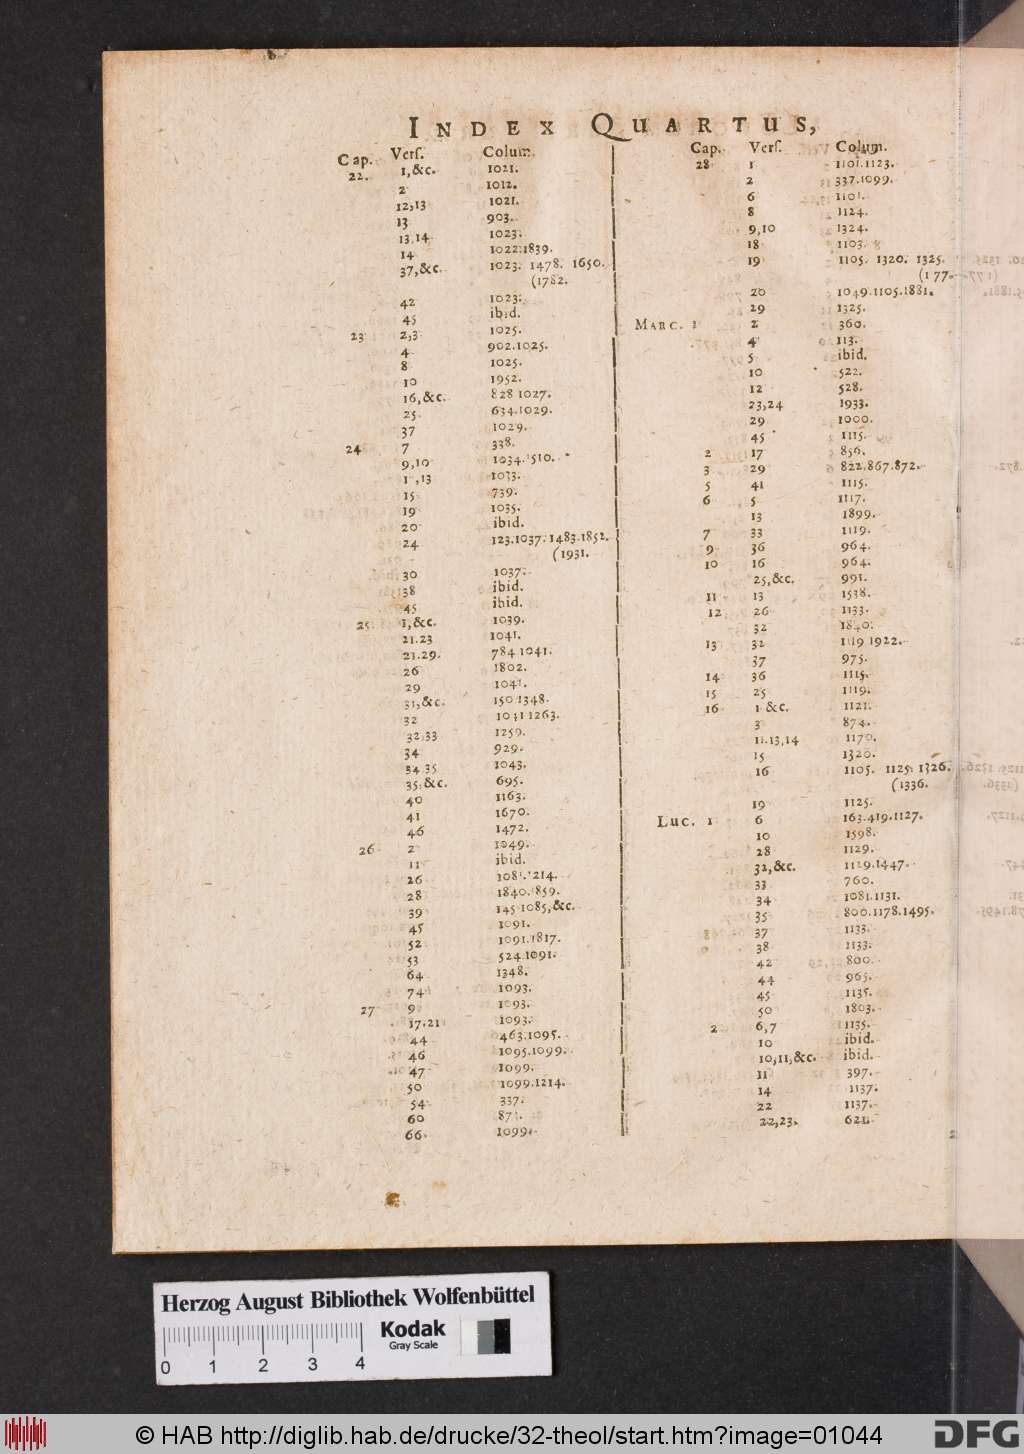 INDEX QUARTUS,
Cap. Vers. Colum.
22. 1,&c. 1021.
2 1012.
12,13 1021.
13 903.
13.14 1023.
14 1022.1839.
37,&c. 1023. 1478. 1650.
(1782.
42 1023.
45 ibid.
23 2,3 1025.
4 902.1025.
8 1025.
10 1952.
16,&c. 828 1027.
25 634.1029.
37 1029.
24 7 338.
9,10 1034.1510.
1 ,13 1033.
15 739.
19 1035.
20 ibid.
24 123.1037.1483.1852.
(1931.
30 1037.
38 ibid.
45 ibid.
25 1,&c. 1039.
21.23 1041.
21.29. 784 1041.
26 1802.
29 1041.
31,&c. 150 1348.
32 1041 1263.
32.33 1259.
34 929.
34.35 1043.
35,&c. 695.
40 1163.
41 1670.
46 1472.
26 2 1049.
11 ibid.
26 1081.1214.
28 1840.1859.
39 145 1085,&c.
45 1091.
52 1091.1817.
53 524.1091.
64 1348.
74 1093.
27 9 1093.
17.21 1093.
44 463.1095.
46 1095.1099.
47 1099.
50 1099.1214.
54 337.
60
66 1099.
Cap. Vers. Colum.
28 1 1101.1123.
2 337.1099.
6 1101.
8 1124.
9,10 1324.
18 1103.
19 1105. 1320. 1325.
(1 77.
20 1049.1105.1881.
29 1325.
MARC. 1 2 360.
4 113.
5 ibid.
10 522.
12 528.
23,24 1933.
29 1000.
45 1115.
2 17 856.
3 29 822.867.872.
5 41 1115.
6 5 1117.
13 1899.
7 33 1119.
9 36 964.
10 16 964.
25,&c. 991.
11 13 1538.
12 26 1133.
32 1840.
13 32 1119 1922.
37 975.
14 36 1115.
15 25 1119.
16 1 &c. 1121.
3 874.
11.13,14 1170.
15 1320.
16 1105. 1125. 1326.
(1336.
19 1125.
LUC. 1 6 163.419.1127.
10 1598.
28 1129.
32,&c. 1129.1447.
33 760.
34 1081.1131.
35 800.1178.1495.
37 1133.
38 1133.
42 800.
44 965.
45 1135.
50 1803.
2 6,7 1135.
10 ibid.
10,11,&c. ibid.
11 397.
14 1137.
22 1137.
22,23. 621.
Herzog August Bibliothek Wolfenbüttel
Kodak
Gray Scale
0 1 2 3 4
© HAB http://diglib.hab.de/drucke/32-theol/start.htm?image=01044
DFG